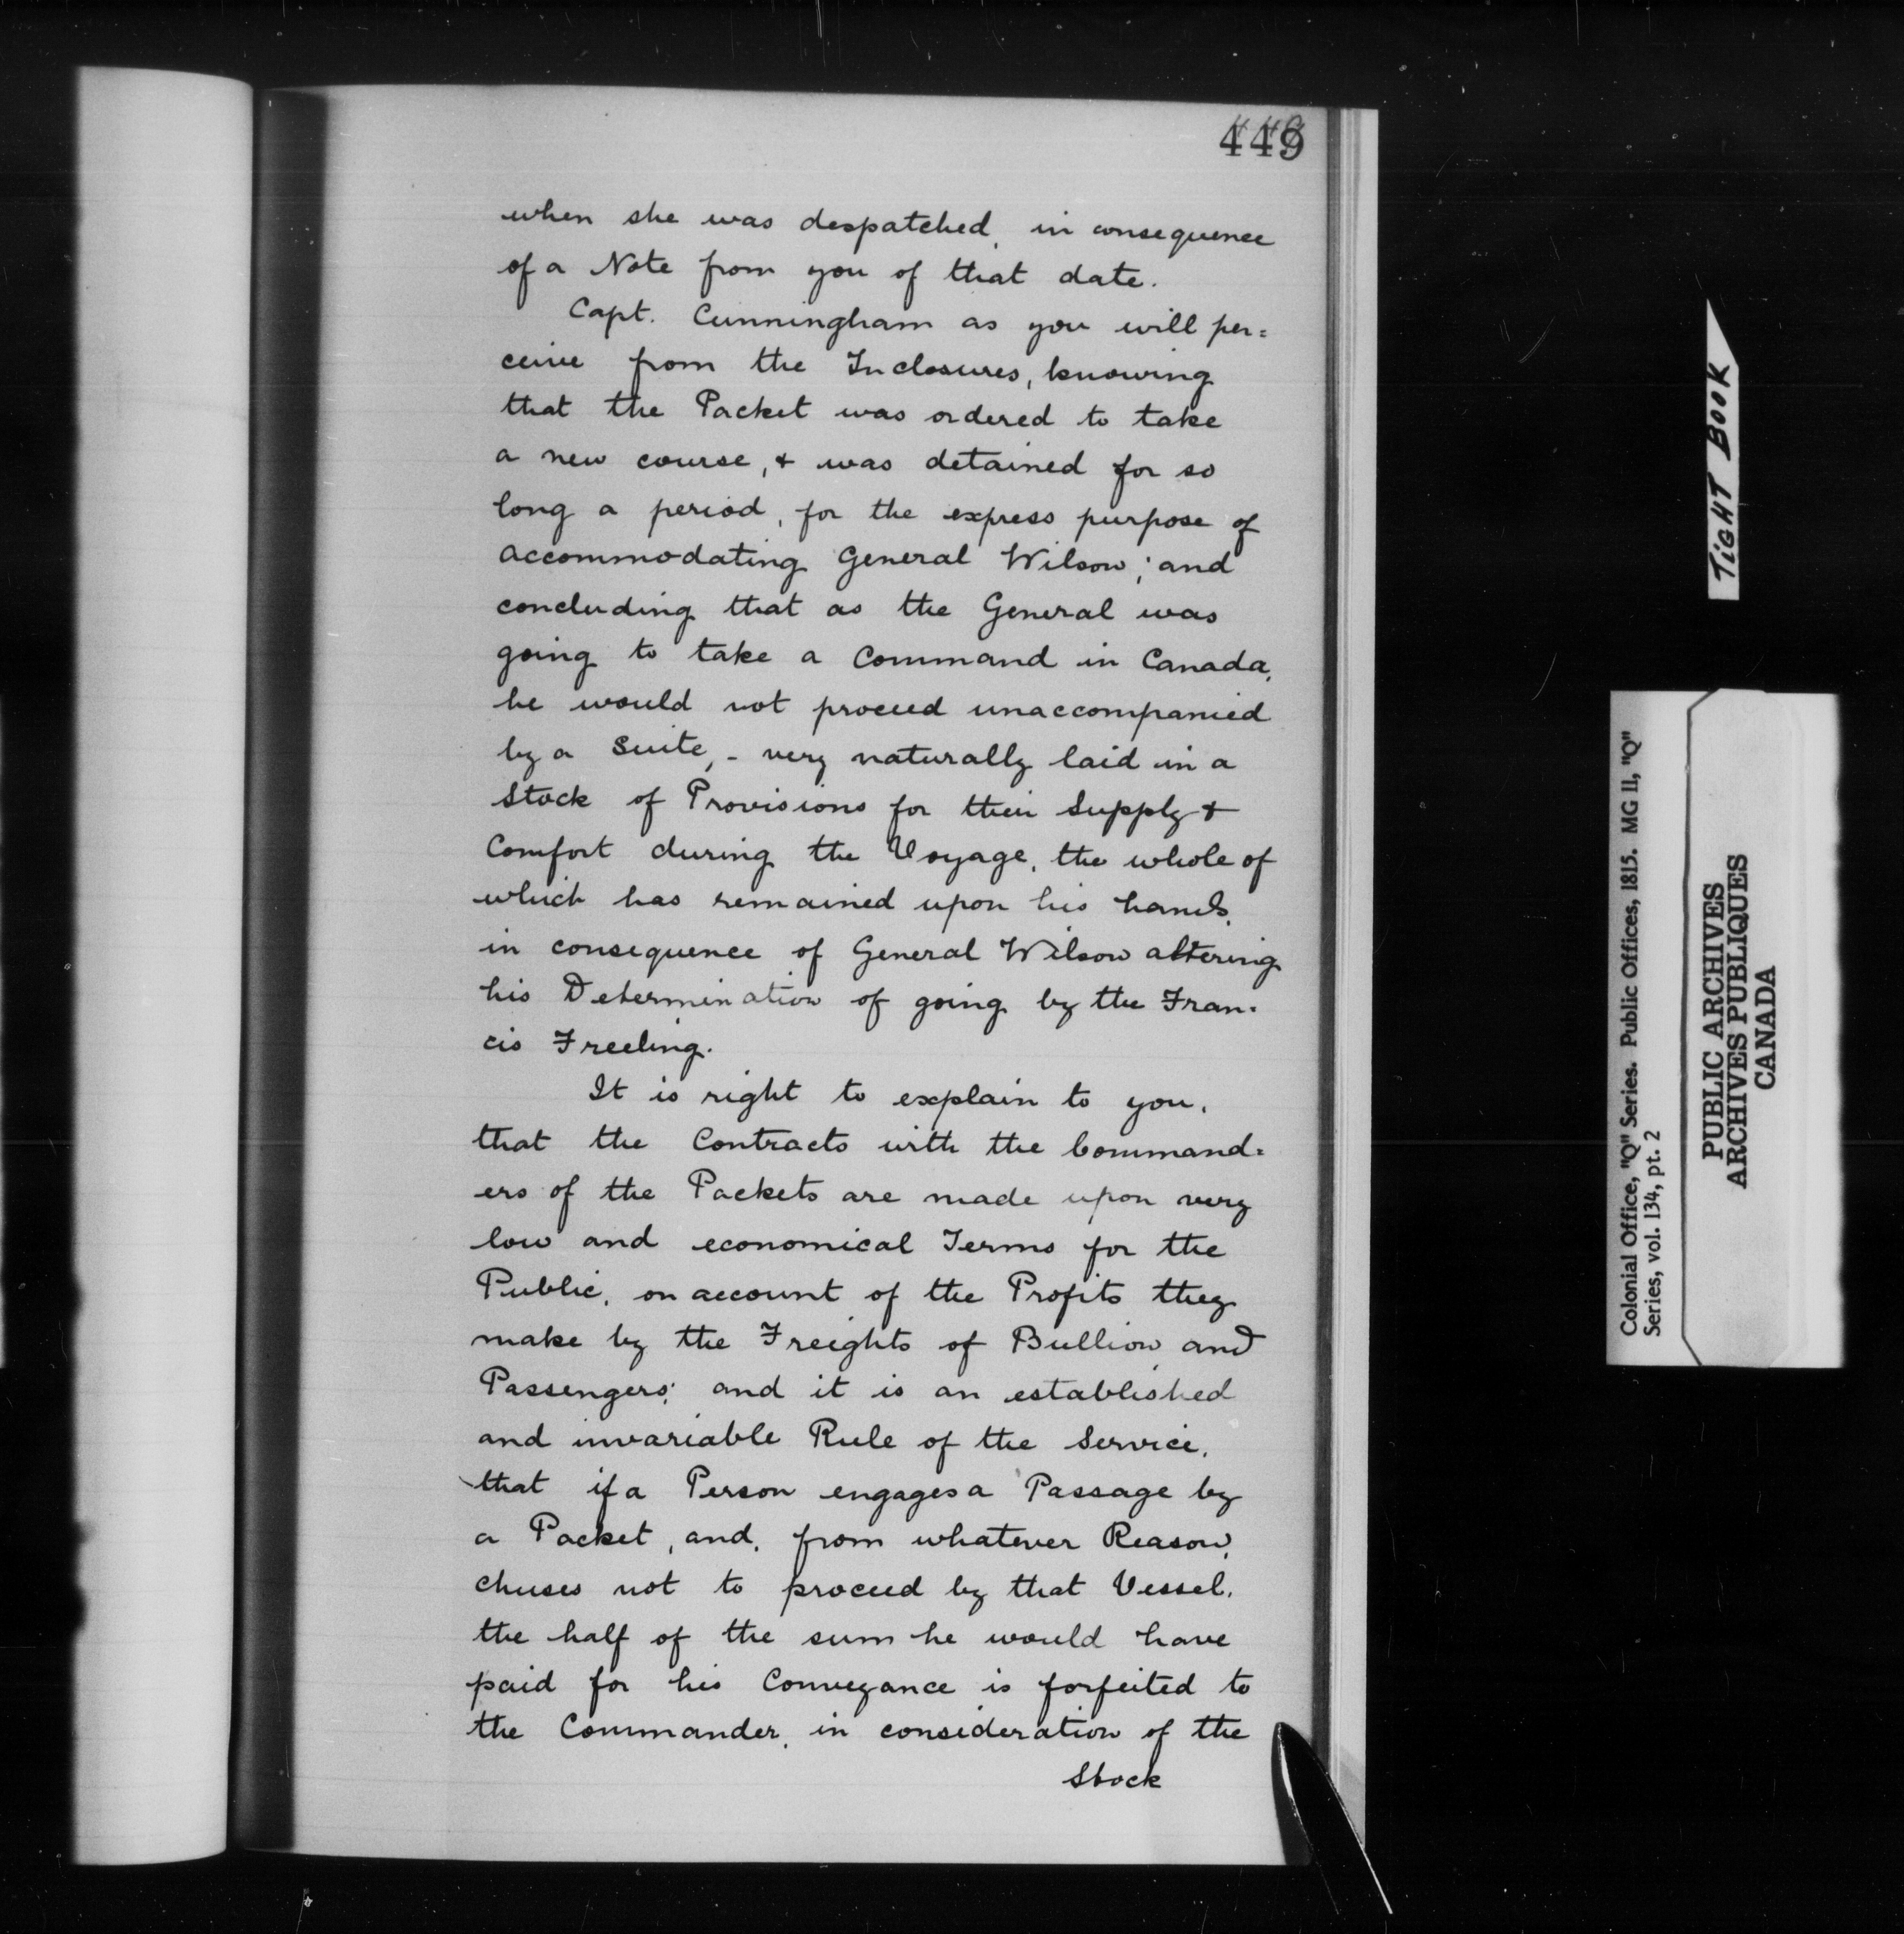 449
when she was despatched, in consequence
of a Note from you of that date.
Capt. Cunningham as you will per=
ceive from the Inclosures, knowing
that the Packet was ordered to take
a new course, & was detained for so
long a period, for the express purpose of
accommodating General Wilson; and
concluding that as the General was
going to take a Command in Canada,
he would not proceed unaccompanied
by a Suite, - very naturally laid in a
Stock of Provisions for their Supply &
Comfort during the Voyage, the whole of
which has remained upon his hands,
in consequence of General Wilson altering
his Determination of going by the Fran=
cis Freeling.
It is right to explain to you,
that the Contracts with the Command=
ers of the Packets are made upon very
low and economical Terms for the
Public, on account of the Profits they
make by the Freights of Bullion and
Passengers; and it is an established
and invariable Rule of the Service,
that if a Person engages a Passage by
a Packet, and, from whatever Reason,
chuses not to proceed by that Vessel,
the half of the sum he would have
paid for his Conveyance is forfeited to
the Commander, in consideration of the
Stock
TIGHT BOOK
Colonial Office, "Q" Series. Public Offices, 1815. MG 11, "Q"
Series, vol. 134, pt. 2
PUBLIC ARCHIVES
ARCHIVES PUBLIQUES
CANADA